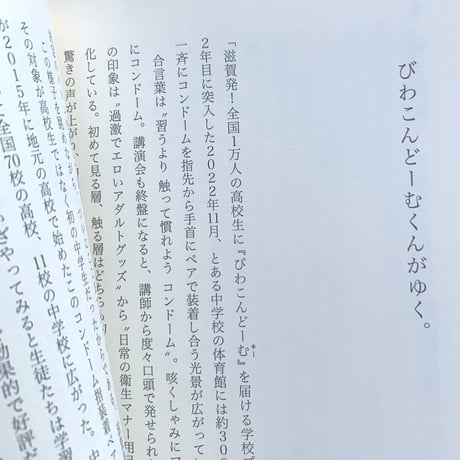 びわこんどーむくんがゆく。
「滋賀発!全国1万人の高校生に『びわこんどーむ』を届ける学校プ
*1
2年目に突入した2022年11月、とある中学校の体育館には約300
一斉にコンドームを指先から手首にペアで装着し合う光景が広がって
合言葉は〝習うより 触って慣れよう コンドーム〟。咳くしゃみにマ
にコンドーム。講演会も終盤になると、講師から度々口頭で発せられ
の印象は〝過激でエロいアダルトグッズ〟から〝日常の衛生マナー用品
化している。初めて見る層、触る層はどちら
驚きの声が上がり、
この様子を眺めながら
その対象が高校生ではなく初の中学生だったから
が2015年に地元の高校で始めたこのコンドーム指装着ペア
て全国70校の高校、11校の中学校に広がった。中
いざやってみると生徒たちは学習
効果的で好評